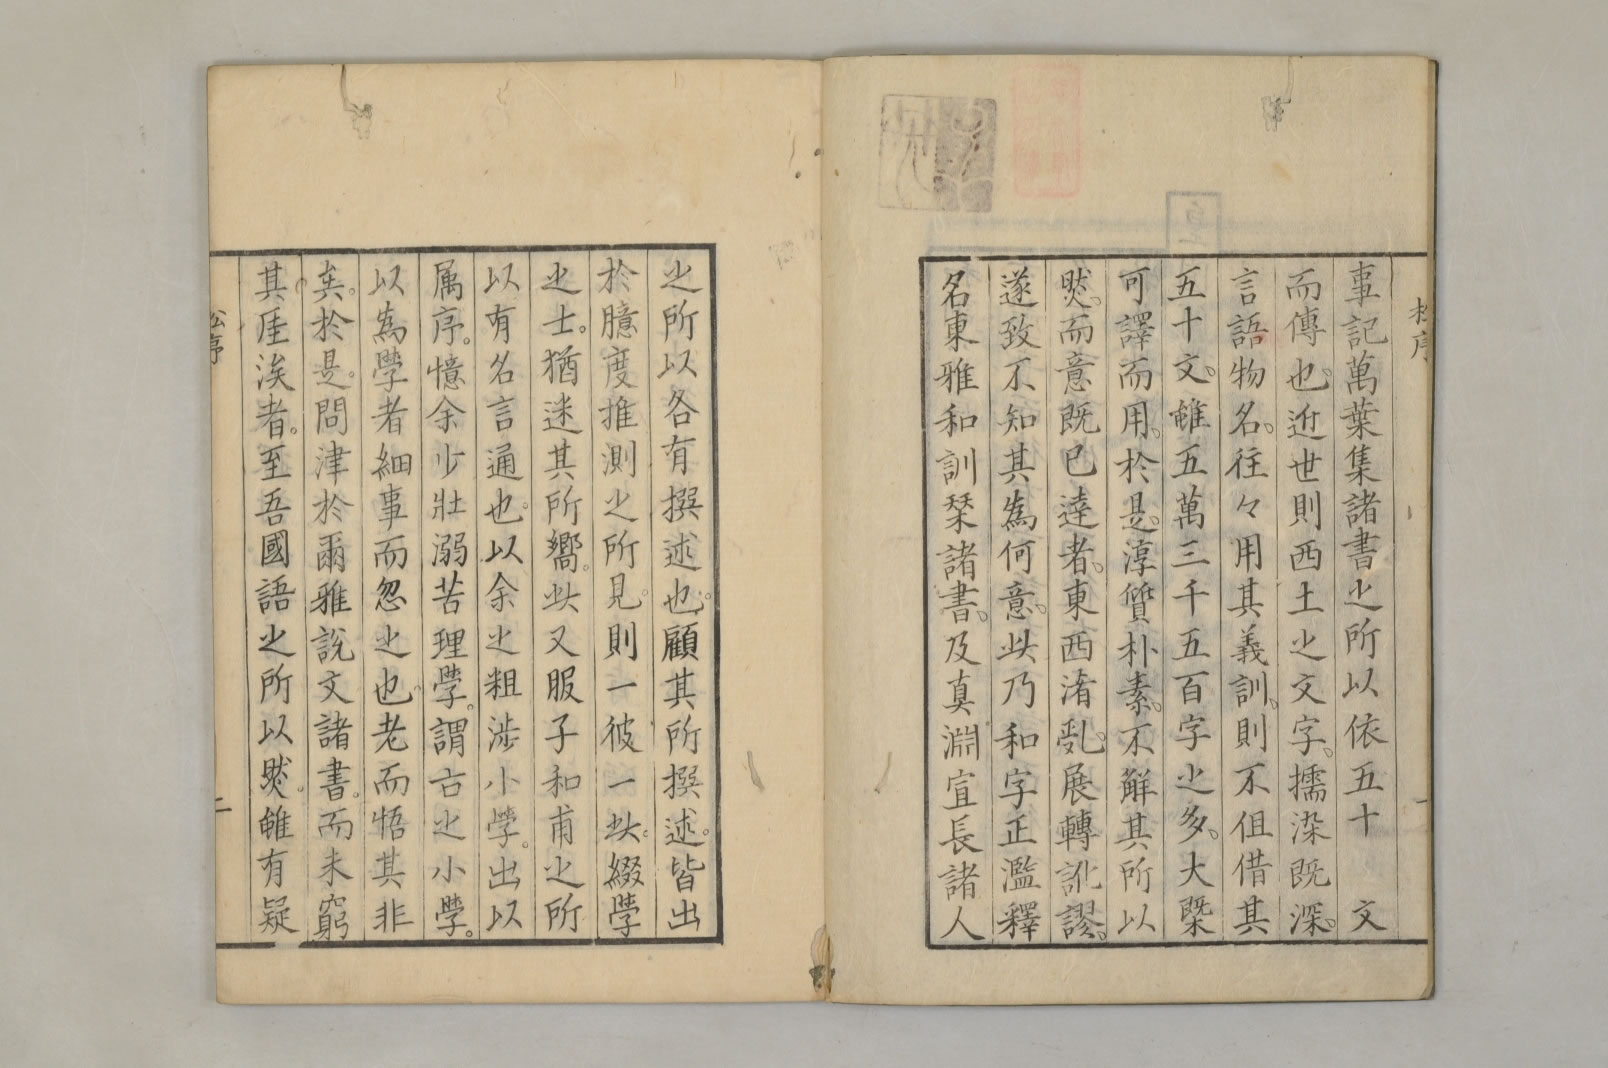 事記萬葉集諸書之所以依五十 文
而傳也。近世則西土之文字。擩染既深。
言語物名。往々用其義訓。則不但借其
五十文。雖五萬三千五百字之多。大槩
可譯而用。於是。淳質朴素。不解其所以
然。而意既已達者。東西渚亂。展轉訛謬。
遂致不知其爲何意。此乃和字正濫釋
名東雅和訓栞諸書。及真淵宣長諸人
之所以各有撰述也。顧其所撰述。皆出
於臆度推測之所見。則一彼一此。綴學
之士。猶迷其所嚮。此又服子和甫之所
以有名言通也。以余之粗涉小學。出以
属序。憶余少壯溺苦理學。謂古之小學。
以爲學者細事而忽之也。老而悟其非
矣。於是。問津於爾雅說文諸書。而未窮
其厓涘者。至吾國語之所以然。雖有疑
松序
二